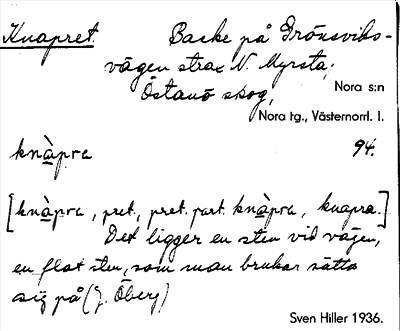 Knapret. Backe på Grönsviks-
vägen strax N. Myrsta,
Östanö skog, Nora s:n
Nora tg., Västernorrl. l.
knàpra 94.
[knàpra, pret., pret. part. knàpra, knapra.]
Det ligger en sten vid vägen,
en flat sten, som man brukar sätta
sig på (J. Öberg)
Sven Hiller 1936.